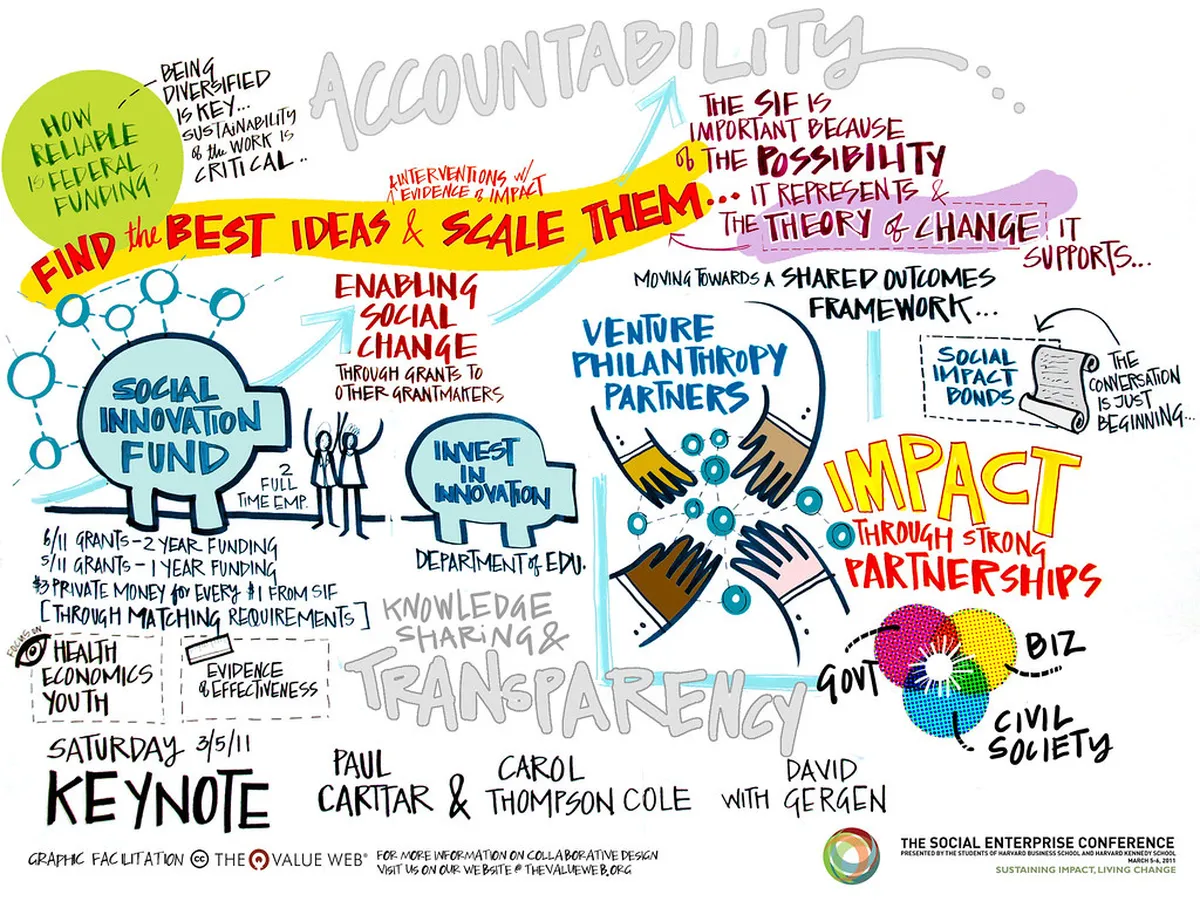 ACCOUNTABILITY...
HOW
RELIABLE
IS FEDERAL
FUNDING?
BEING
DIVERSIFIED
IS KEY...
SUSTAINABILITY
of the WORK IS
CRITICAL..
& INTERVENTIONS W/
EVIDENCE of IMPACT
FIND the BEST IDEAS & SCALE THEM...
THE SIF IS
IMPORTANT BECAUSE
of THE POSSIBILITY
IT REPRESENTS &
THE THEORY of CHANGE IT
SUPPORTS...
MOVING TOWARDS A SHARED OUTCOMES
FRAMEWORK...
ENABLING
SOCIAL
CHANGE
THROUGH GRANTS TO
OTHER GRANTMAKERS
SOCIAL
INNOVATION
FUND
2
FULL
TIME EMP.
INVEST
IN
INNOVATION
DEPARTMENT of EDU.
VENTURE
PHILANTHROPY
PARTNERS
SOCIAL
IMPACT
BONDS
THE
CONVERSATION
IS JUST
BEGINNING...
IMPACT
THROUGH STRONG
PARTNERSHIPS
6/11 GRANTS - 2 YEAR FUNDING
5/11 GRANTS - 1 YEAR FUNDING
$3 PRIVATE MONEY for EVERY $1 FROM SIF
[THROUGH MATCHING REQUIREMENTS]
FOCUS ON
HEALTH
ECONOMICS
YOUTH
EVIDENCE
of EFFECTIVENESS
KNOWLEDGE
SHARING &
TRANSPARENCY
GOVT
BIZ
CIVIL
SOCIETY
SATURDAY 3/5/11
KEYNOTE
PAUL
CARTTAR &
CAROL
THOMPSON COLE
WITH
DAVID
GERGEN
GRAPHIC FACILITATION cc THE VALUE WEB®
FOR MORE INFORMATION ON COLLABORATIVE DESIGN
VISIT US ON OUR WEBSITE @ THEVALUEWEB.ORG
THE SOCIAL ENTERPRISE CONFERENCE
PRESENTED BY THE STUDENTS OF HARVARD BUSINESS SCHOOL AND HARVARD KENNEDY SCHOOL
MARCH 5-6, 2011
SUSTAINING IMPACT, LIVING CHANGE